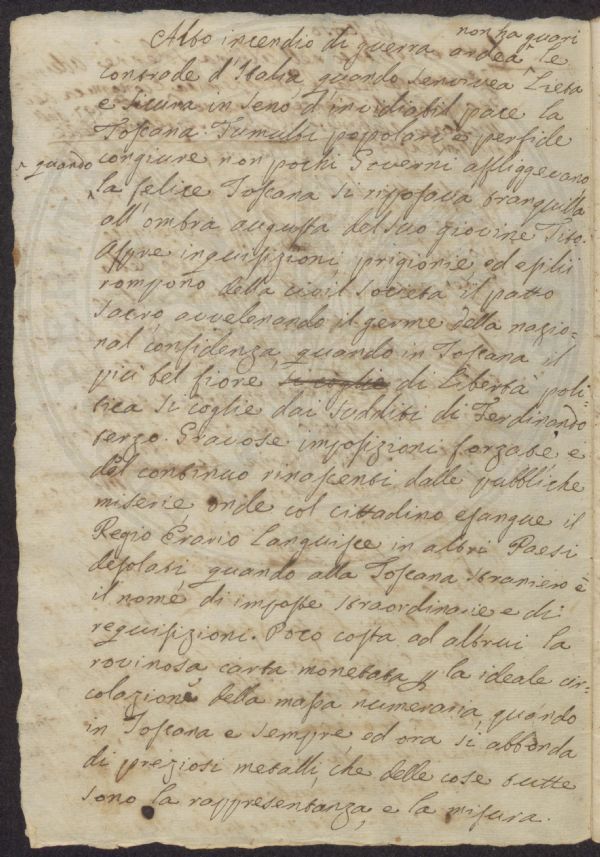 non ha guari
Alto incendio di guerra ardea le
contrade d'Italia quando scriveva Lieta
e sicura in seno d'invidiabil pace la
Toscana. Tumulti popolari e perfide
congiure non pochi Governi affliggevano
^ quando
la felice Toscana si riposava tranquilla
all'ombra augusta del suo giovine Tito.
Aspre inquisizioni, prigionie ed esilii
rompono della civil società il patto
sacro avvelenando il germe della nazio=
nal confidenza, quando in Toscana il
più bel fiore si coglie di Libertà poli=
tica si coglie dai sudditi di Ferdinando
terzo. Gravose imposizioni forzate, e
del continuo rinascenti dalle pubbliche
miserie onde col cittadino esangue il
Regio Erario languisce in altri Paesi
desolati quando alla Toscana straniero è
il nome di imposte straordinarie e di
requisizioni. Poco costa ad altrui la
rovinosa carta monetata la ideale cir=
colazione della massa numeraria, quando
in Toscana e sempre ed ora si abbonda
di preziosi metalli, che delle cose tutte
sono la rappresentanza, e la misura.